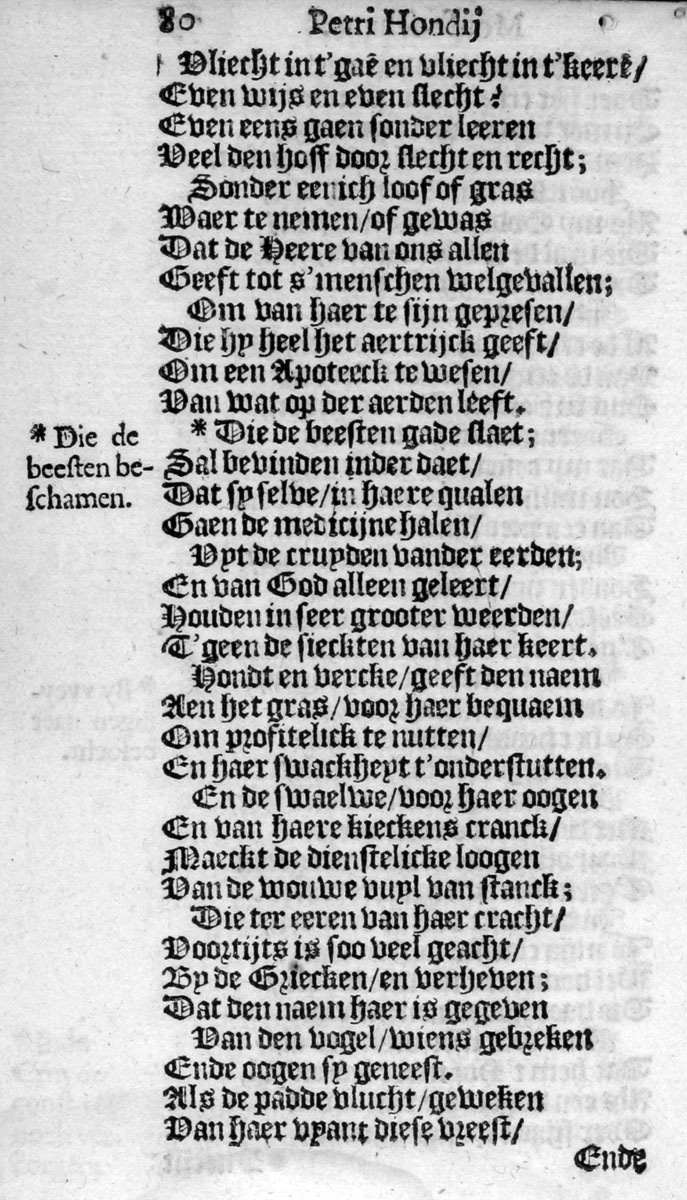 80 Petri Hondij
Vliecht in t'gaē en vliecht in t'keerē/
Even wijs en even slecht:
Even eens gaen sonder leeren
Veel den hoff door slecht en recht;
Sonder eenich loof of gras
Waer te nemen/of gewas
Dat de Heere van ons allen
Geeft tot s'menschen welgevallen;
Om van haer te sijn gepresen/
Die hy heel het aertrijck geeft/
Om een Apoteeck te wesen/
Van wat op der aerden leeft.
* Die de beesten beschamen.
* Die de beesten gade slaet;
Sal bevinden inder daet/
Dat sy selve/in haere qualen
Gaen de medicijne halen/
Vyt de cruyden vander eerden;
En van God alleen geleert/
Houden in seer grooter weerden/
T'geen de sieckten van haer keert.
Hondt en vercke/geeft den naem
Aen het gras/voor haer bequaem
Om profitelick te nutten/
En haer swackheyt t'onderstutten.
En de swaelwe/voor haer oogen
En van haere kieckens cranck/
Maeckt de dienstelicke loogen
Van de wouwe vuyl van stanck;
Die ter eeren van haer cracht/
Voortijts is soo veel geacht/
By de Griecken/en verheven;
Dat den naem haer is gegeven
Van den vogel/wiens gebreken
Ende oogen sy geneest.
Als de padde vlucht/geweken
Van haer vyant diese vreest/
Ende